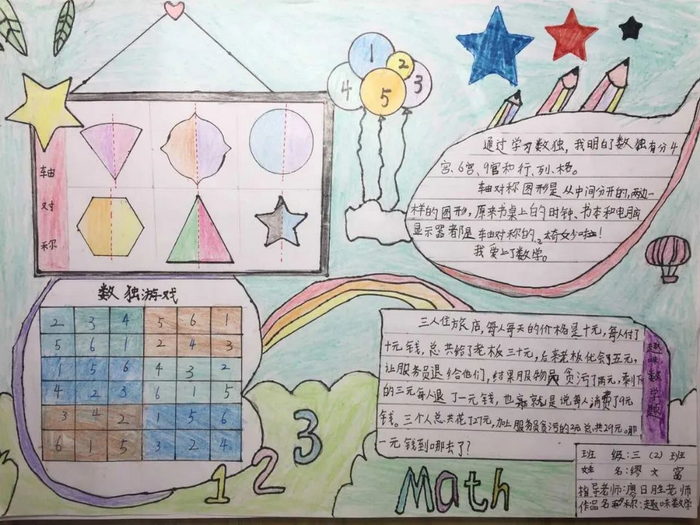 1
2
4
5
3
轴
对
称
通过学习数独，我明白了数独有分4
宫、6宫、9宫和行、列、格。
轴对称图形是从中间分开的，两边一
样的图形，原来书桌上的时钟、书本和电脑
显示器都是轴对称的。太奇妙啦！
我爱上了数学。
数独游戏
2 3 4 5 6 1
5 6 1 2 4 3
1 5 6 4 3 2
4 2 3 6 1 5
3 4 2 1 5 6
6 1 5 3 2 4
三人住旅店，每人每天的价格是十元，每人付了
十元钱，总共给了老板三十元，后来老板优会五元，
让服务员退给他们，结果服务员贪污了两元，剩下
的三元每人退了一元钱，也就是说每人消费了9元
钱。三个人总共花了27元，加上服务员贪污的2元总共29元。那
一元钱到哪去了？
趣味数学题
1 2 3
Math
班 级：三（2）班
姓 名：缪文富
指导老师：廖日胜老师
作品名称：趣味数学